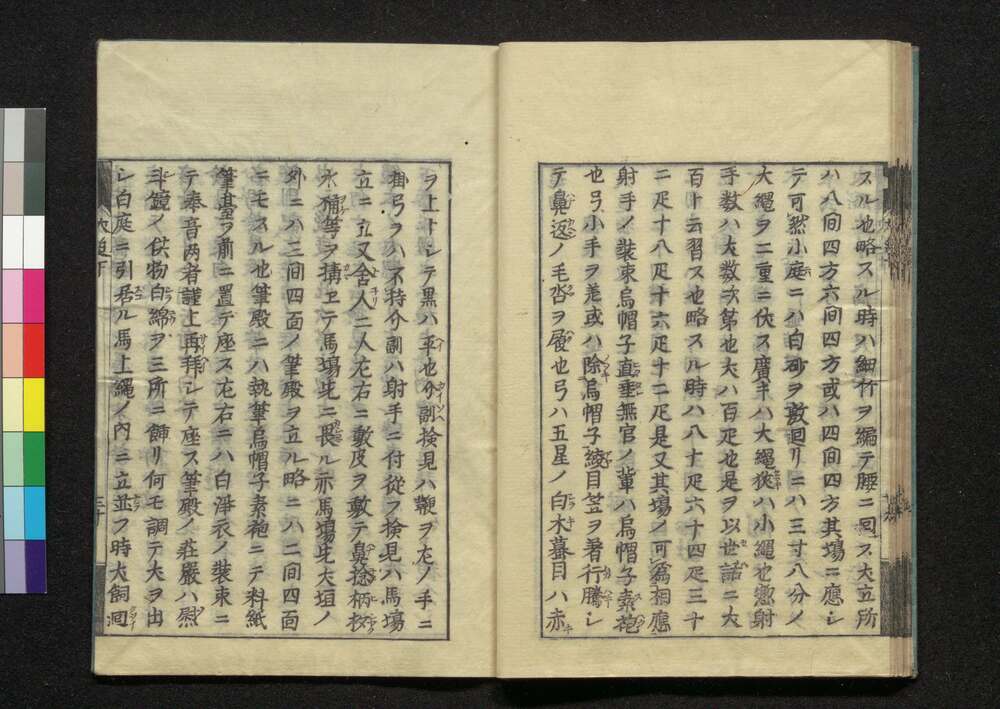 スル也略スル時ハ細竹ヲ編テ腰ニ回ス犬立所
ハ八間四方六間四方或ハ四間四方其場ニ應シ
テ可然小庭ニハ白砂ヲ敷廻リニハ三寸八分ノ
大縄ヲ二重ニ伏ス廣キハ大縄狹ハ小縄也惣射
手数ハ犬数次第也犬ハ百疋也是ヲ以世話ニ犬
百ト云習ス也略スル時ハ八十疋六十四疋三十
二疋十八疋十六疋十二疋是又其場ノ可爲相應
射手ノ裝束烏帽子直垂無官ノ輩ハ烏帽子素袍
也弓小手ヲ差或ハ除烏帽子綾目笠ヲ著行騰シ
テ鼻返ノ毛沓ヲ履也弓ハ五星ノ白木蟇目ハ赤
ヲ上トシテ黒ハ平也分訓検見ハ鞭ヲ左ノ手ニ
掛弓ヲハ不持分訓ハ射手ニ付從フ検見ハ馬場
立ニ立又舎人二人左右ニ敷皮ヲ敷テ鼻捻柄杓
水桶等ヲ搆ヱテ馬場bottomニ畏ル亦馬場大垣ノ
外ニハ三間四面ノ筆殿ヲ立ル略ニハ二間四面
ニモスル也筆殿ニハ執筆烏帽子素袍ニテ料紙
筆臺ヲ前ニ置テ座ス左右ニハ白淨衣ノ裝束ニ
テ奉音両者謹上再拜シテ座ス筆殿ノ莊嚴ハ熨
斗鏡ノ供物白綿ヲ三所ニ餝リ何モ調テ犬ヲ出
シ白庭ニ引居ル馬上縄ノ内ニ立並フ時犬飼迴
犬追下
三十